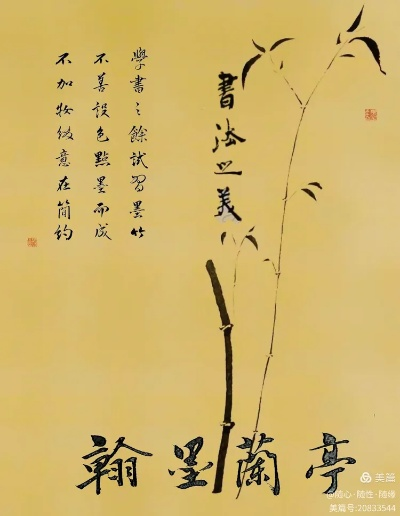 學書之餘試習墨竹
不善設色點墨而成
不加妝綴意在簡約
書法之美
翰墨蘭亭
美篇
@随心·随性·随缘
美篇号:20833544